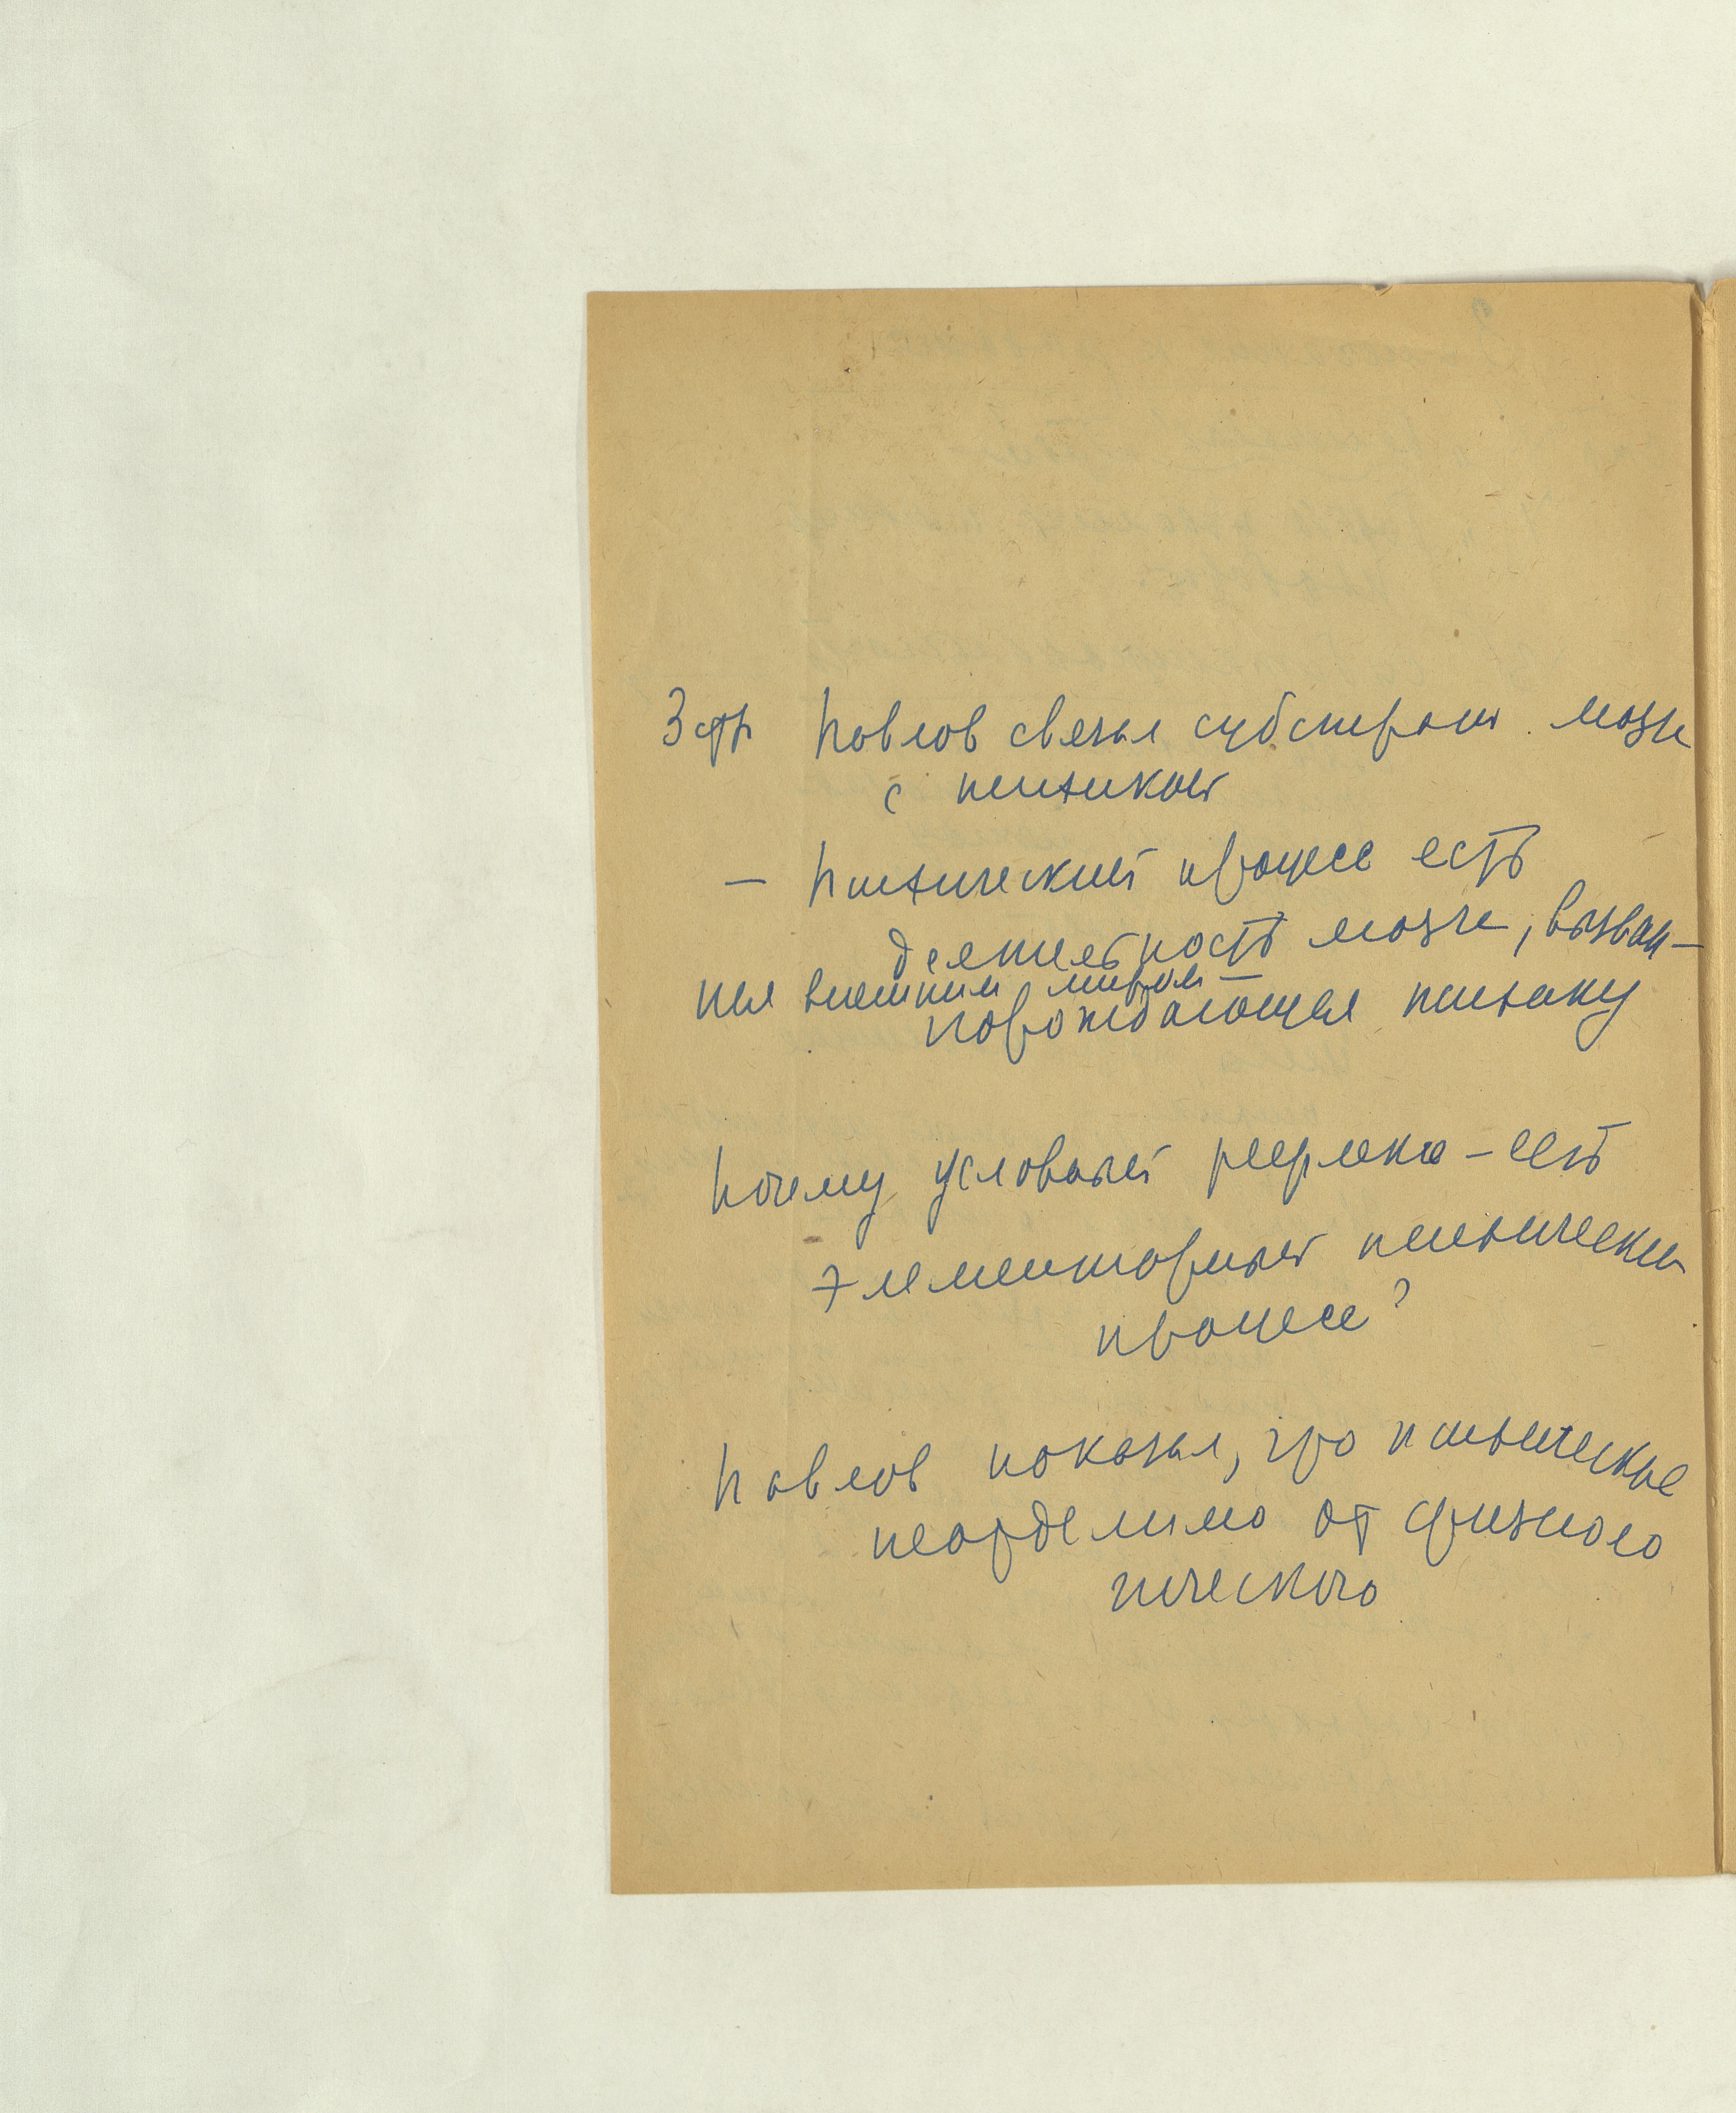 3 стр Павлов связал субстрат мозга
с психикой
— Психический процесс есть
деятельность мозга, вызван-
ная внешним миром —
порождающая психику
Почему условный рефлекс — есть
элементарный психический
процесс?
Павлов показал, что психическое
неотделимо от физиоло
гического